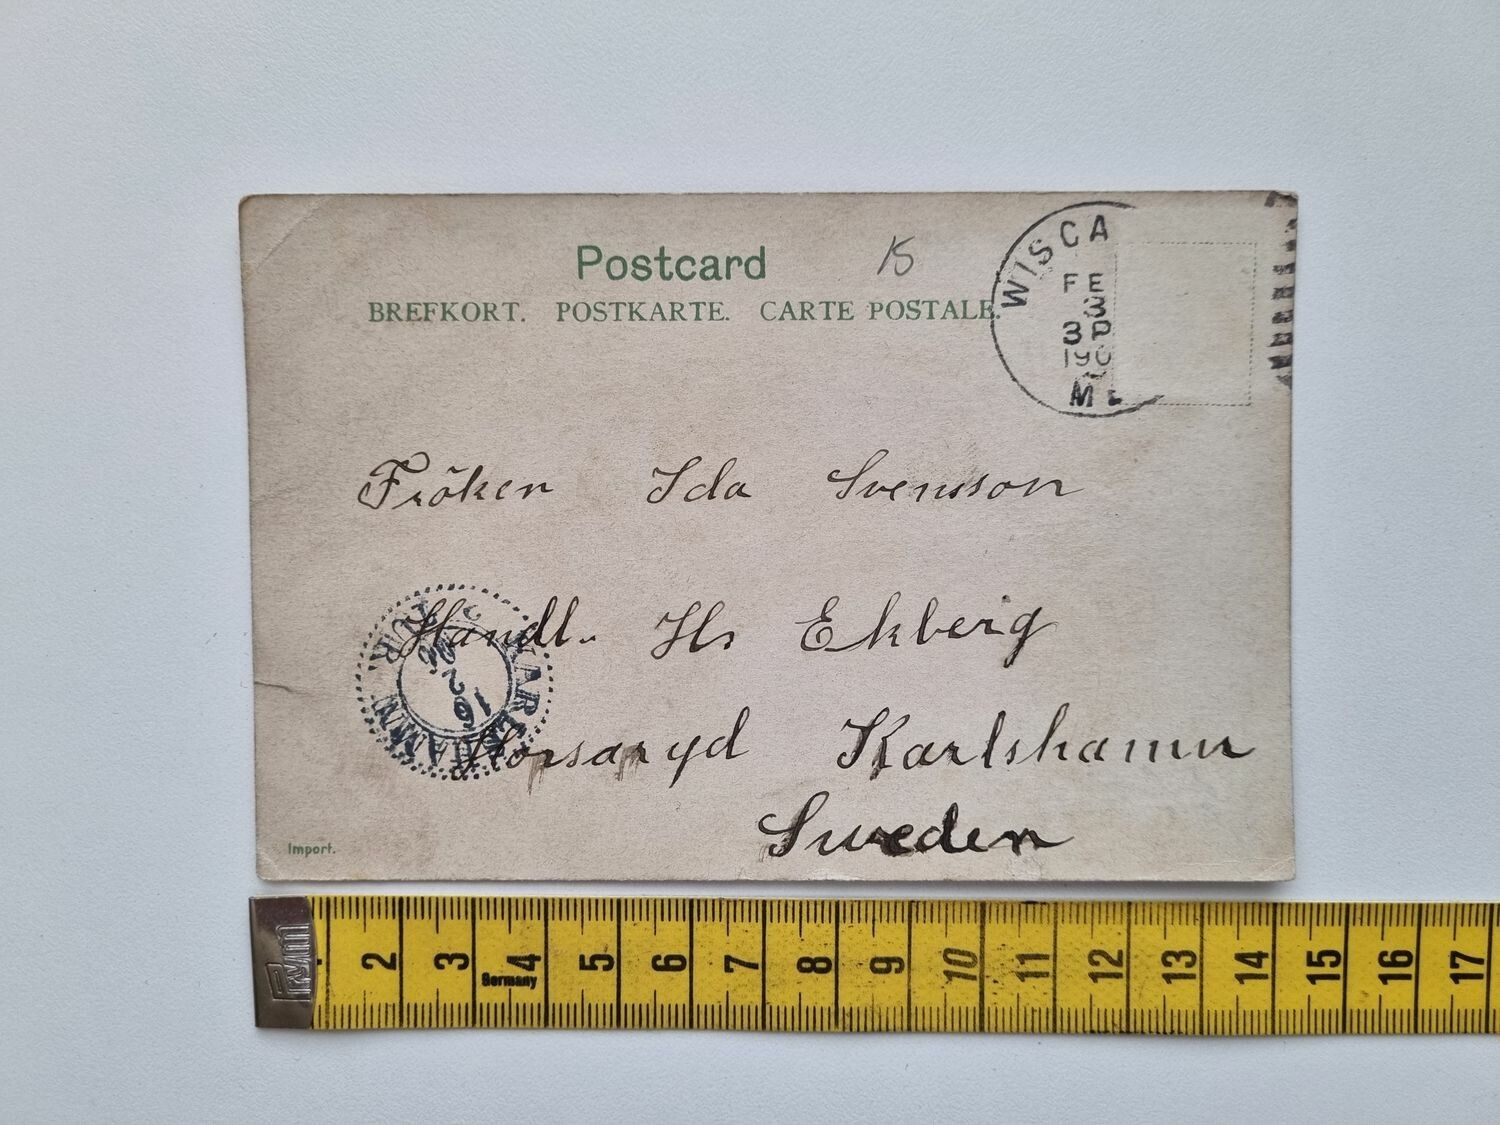 Postcard
15
BREFKORT. POSTKARTE. CARTE POSTALE.
WISCA
FE
3
3 P
190
ME
Fröken Ida Svensson
Handl. Hr Ekberg
Horsaryd Karlshamn
Sweden
16
2
Import.
2 3 4 5 6 7 8 9 10 11 12 13 14 15 16 17
Germany
Prym